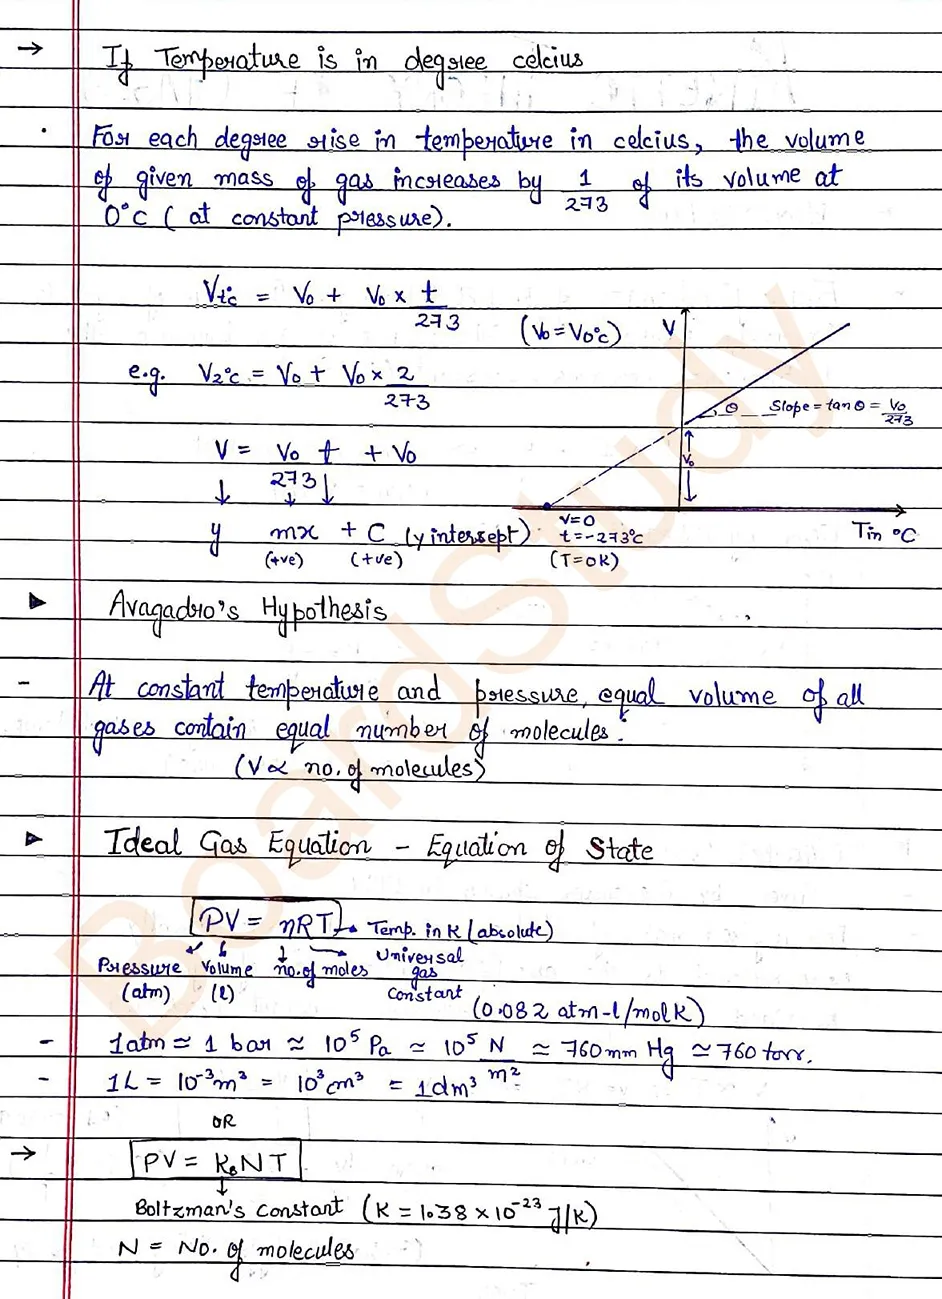 → If Temperature is in degree celcius
• For each degree rise in temperature in celcius, the volume
of given mass of gas increases by 1/273 of its volume at
0°C (at constant pressure).
Vt°c = V₀ + V₀ × t/273
(V₀ = V₀°c)
V
e.g. V₂°c = V₀ + V₀ × 2/273
θ Slope = tan θ = V₀/273
V = V₀/273 t + V₀
V₀
↓ ↓ ↓
y mx + C (y intersept)
(+ve) (+ve)
V=0
t=-273°C
(T=0K)
T in °C
► Avagadro's Hypothesis
- At constant temperature and pressure, equal volume of all
gases contain equal number of molecules.
(V ∝ no. of molecules)
► Ideal Gas Equation - Equation of State
PV = nRT → Temp. in K (absolute)
Pressure (atm)
Volume (l)
no. of moles
Universal gas constant
(0.082 atm-l/mol K)
- 1 atm ≈ 1 bar ≈ 10⁵ Pa ≈ 10⁵ N/m² ≈ 760 mm Hg ≃ 760 torr.
- 1L = 10⁻³m³ = 10³cm³ = 1dm³
OR
→ PV = KBNT
↓
Boltzman's constant (K = 1.38 × 10⁻²³ J/K)
N = No. of molecules
BoardStudy